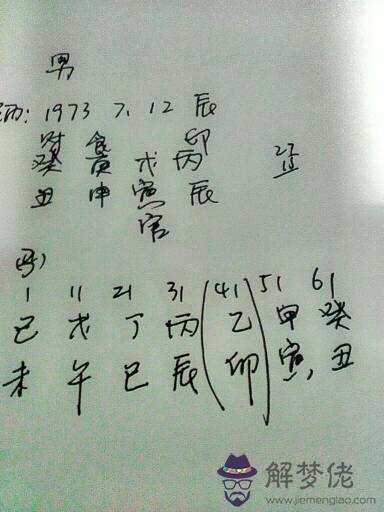 男
1973 7. 12 辰
财 食 卯
癸 庚 戊 丙
丑 申 寅 辰
官
1 11 21 31 (41) 51 61
己 戊 丁 丙 乙 甲 癸
未 午 巳 辰 卯 寅 丑
解梦佬
www.jiemenglao.com